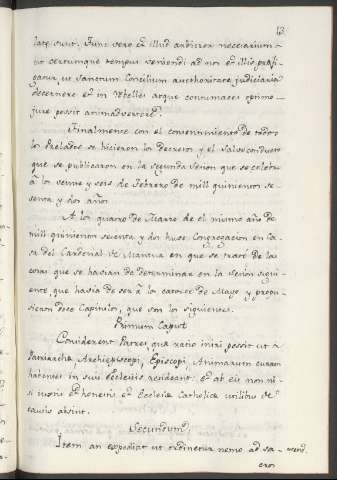 13
late sunt. Tunc vero et illud arbitror necesarium
ut certumque tempus veniendi ad nos et illis prefi-
gatur, ut Sanctum Concilium aucthoritate judiciaria
decernere et in rebelles atque contumaces optimo
jure possit animadvertere.
Finalmente con el consentimiento de todos
los Prelados se hicieron los Decretos y el Salvo conducto
que se publicaron en la segunda Sesion que se celebrò
à los veinte y seis de Febrero de mill quinientos se-
senta y dos años.
A los quatro de Marzo de el mismo año de
mill quinientos sesenta y dos huvo Congregacion en Ca-
sa del Cardenal de Mantua en que se tratò de las
cosas que se havian de determinar en la sesion sigui-
ente, que havia de ser à los catorce de Mayo, y propu-
sieron doce Capitulos, que son los siguientes.
Primum Caput
Considerent Patres, qua ratio iniri possit ut à
Patriarcha Archiepiscopi, Episcopi, Animarum curam
habentes in suis Ecclesiis resideant, et ab eis non ni-
si justis et honestis et Ecclesiæ Catholicæ utilibus de
causis absint.
Secundum.
Item an expediat ut ordinetur nemo ad sa-
cros